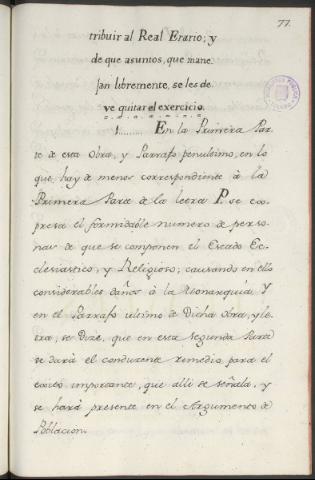 77.
tribuir al Real Erario; y
de que asuntos, que mane
jan libremente, se les de
ve quitar el exercicio.
1......... En la Primera Par
te de esta Obra, y Parrafo penultimo, en lo
que hay de menos correspondiente à la
Primera Parte de la letra P. se ex
presa el formidable numero de perso
nas de que se componen el Estado Ec
clesiastico, y Religioso; causando en ello
considerables daños à la Monarquia. Y
en el Parrafo ultimo de Dicha Obra, y le
tra, se Dize, que en esta segunda Parte
se dará el conducente remedio para el
exito importante, que alli se señala, y
se hará presente en el Argumento de
Poblacion.